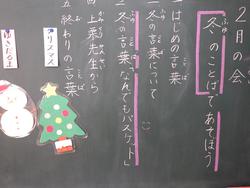 2月の会
冬のことばであそぼう
ふゆ
一はじめの言葉
二冬の言葉について
三冬の言葉なんでもバスケット」
四上薬先生から
五終わりの言葉
クリスマス
ゆきだるま